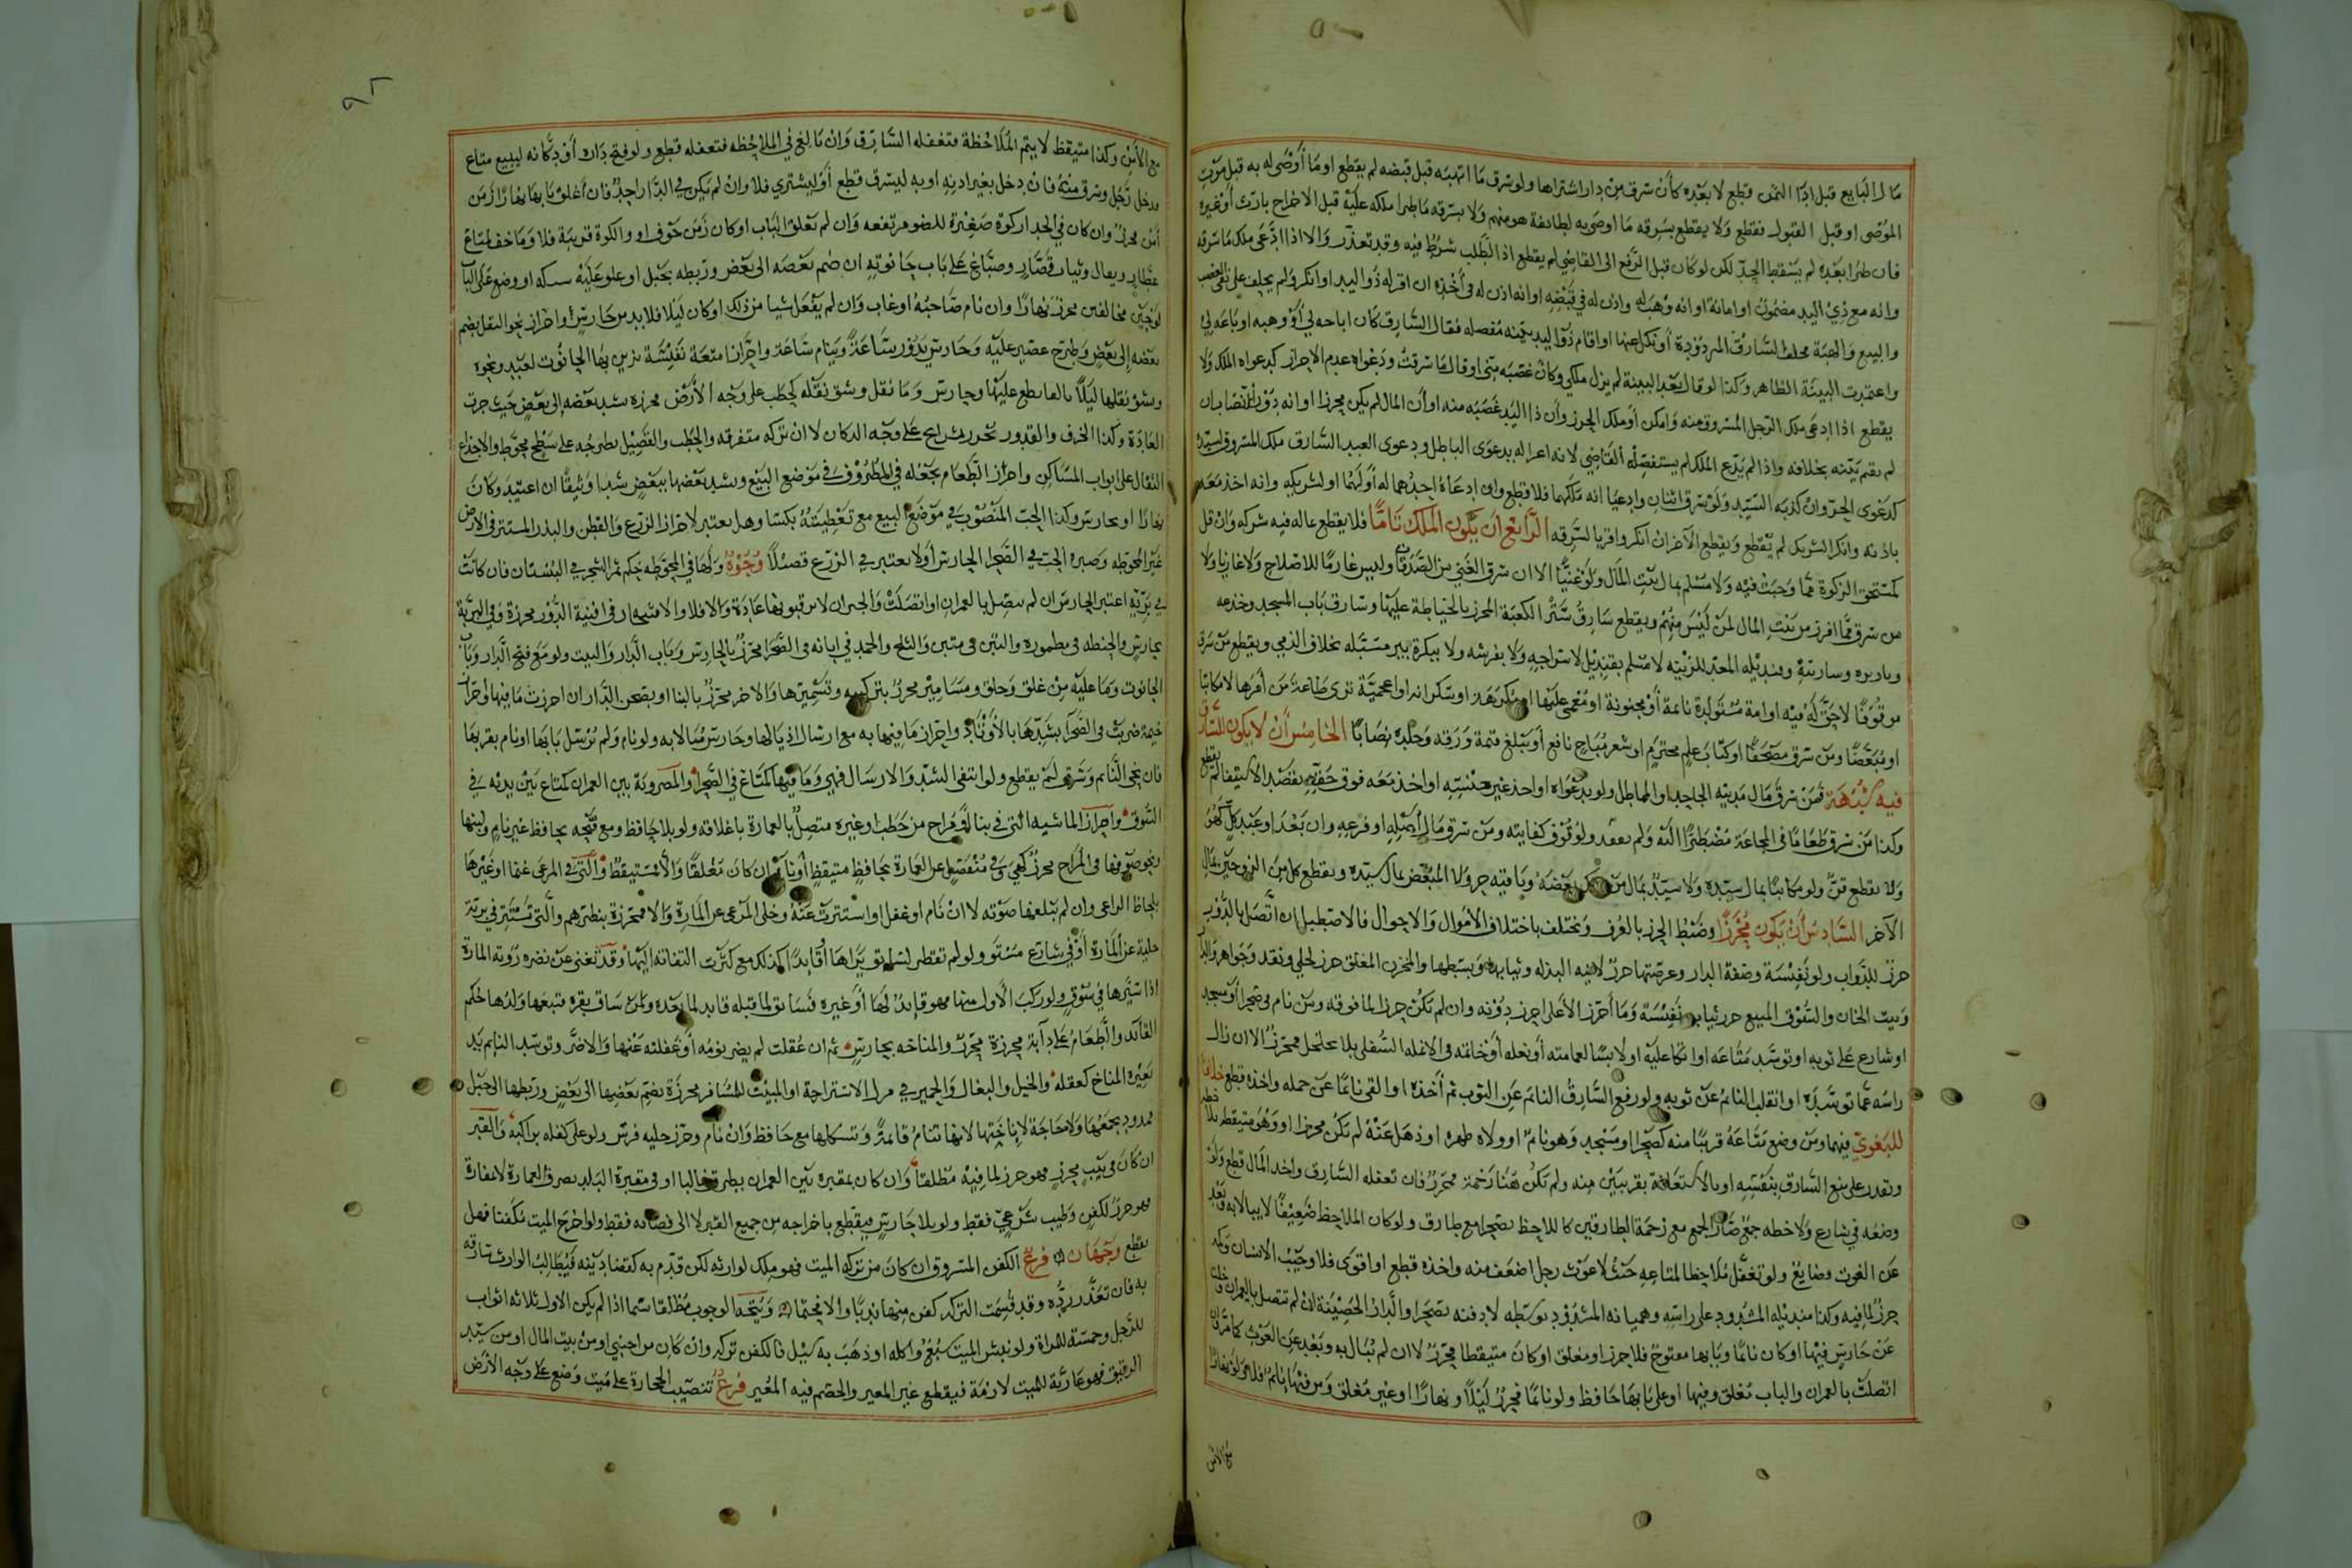 مال البايع قبل ادا الثمن قطع لا بعده كأن سرق من دار اشتراها ولو سرق ما اتهبه قبل قبضه لم يقطع او ما أوصى له به قبل موت
الموصى او قبل القبول فقطع ولا يقطع بسرقه ما اوصى به لطائفة هو منهم ولا بسرقه ما طرا ملكه عليه قبل الاخراج بارث أو غيره
فان طرا بعده لم يسقط الحد لكن لو كان قبل الرفع الى القاضي لم يقطع اذ الطلب شرط فيه وقد تعذر والا اذا ادعى ملك ما سرقه
وانه مع ذي اليد مضمون او امانة او انه وهبه له واذن له في قبضه او انه اذن له في أخذه ان اقر له ذو اليد او انكر ولم يحلف على نفى الغصب
والبيع والهبة محلف السارق المردودة أو نكل عنها او اقام ذو اليد بينه مفصله فقال السارق كان اباحه لي أو وهبه او باعه لي
واعتمدت البينة الظاهر وكذا لو قال بعد البينة لم يزل ملكي وكان غصبه مني او قال ما سرقت ودعواه عدم الاحراز كدعواه الملك ولا
يقطع اذا ادعى ملك الرجل المسروق منه وامكن أو ملك الحرز وأن ذا اليد غصبه منه او أن المال لم يكن محرزا او انه دون النصاب ان
لم تقم بينه بخلافه واذا لم يدع الملك لم يستفصله القاضي لانه اغرا له بدعوى الباطل ودعوى العبد السارق ملك المسروق لسيده
كدعوى الحر وان كذبه السيد ولو سرق اثنان وادعيا انه ملكهما فلا قطع وان ادعاه احدهما له أو لهما او لشريكه وانه اخذ معه
باذنه وانكر الشريك لم يقطع ويقطع الآخر ان انكر واقر بالسرقه الرابع أن يكون الملك تاما فلا يقطع بماله فيه شركه وان قل
كمستحق الزكوة مما وجبت فيه ولا مسلم بمال بيت المال ولو غنيا الا ان سرق الغني من الصدقات وليس غارما للاصلاح ولا غازيا ولا
من سرق مما افرز من بيت المال لمن ليس منهم ويقطع سارق ستر الكعبة المحرز بالخياطة عليها وسارق باب المسجد وجذعه
وتازيره وساريته وقنديله المعد للزينه لا مسلم بقنديل لاستراجه ولا بفرشه ولا ببكرة بير مسبله بخلاف الذمي ويقطع من سرق
موقوفا لا حق له فيه او امة مستولدة نايمة أو مجنونة او مغمى عليها او مكرهة او سكرانه او اعجمية ترى طاعة من أمرها لا مكاتبا
او مبعضا ومن سرق مصحفا او كتاب علم محترم او شعر مباح نافع أو يبلغ قيمة ورقه وجلده نصابا الخامس أن لا يكون للسارق
فيه شبهة فمن سرق مال مدينه الجاحد او المماطل ولو بدعواه او اخذ غير جنسه او اخذ معه فوق حقه بقصد الاستيفا لم يقطع
وكذا من سرق طعاما في المجاعة مضطرا اليه ولم يقدر ولو فوق كفايته ومن سرق مال أصله او فرعه وان بعد او عبد كل كهو
ولا يقطع قن ولو مكاتبا بمال سيده ولا سيد بمال من ملك بعضه وباقيه حر ولا المبعض بمال سيده ويقطع كل من الزوجين بمال
الآخر السادس أن يكون محرزا وضبط الحرز بالعرف ويختلف باختلاف الأموال والاحوال فالاصطبل ان اتصل بالدور
حرز للدواب ولو نفيسة وصفة الدار وعرصتها حرز لانيه البذله وثيابها وبسطها والمخزن المغلق حرز لحلي ونقد وجواهر والدار
وبيت الخان والسوق المنيع حرز ثياب نفيسة وما أحرز الأعلى احرز دونه وان لم تكن حرزا لما فوقه ومن نام في صحرا أو مسجد
او شارع على ثوبه او توسد متاعه او اتكا عليه او لابسا لعمامته أو نعله أو خاتمه في الانمله السفلى بلا تخلخل فمحرز الا ان زال
راسه عما توسده او انقلب النائم عن ثوبه ولو رفع السارق النائم عن الثوب ثم أخذه او القى نائما عن جمله واخذه قطع خلافا
للبغوي فيهما ومن وضع متاعه قريبا منه كصحرا ومسجد وهو نائم او ولاه ظهره او ذهل عنه لم تكن محرزا او وهو متيقظ بلاحظ
وتقدر على منع السارق بنفسه او بالاستغاثة بقريبين منه ولم تكن هنا زحمة فمحرز فان تغفله السارق واخذ المال قطع ولو
وضعه في شارع ولاحظه جمع صار الجمع مع زحمة الطارقين كاللاحظ بصحرا مع طارق ولو كان الملاحظ ضعيفا لا يبالا به وبعد
عن الغوث وضايع ولو تغفل ملاحظا لمتاعه حيث لا غوث رجل اضعف منه واخذه قطع او اقوى فلا وجيب الانسان وكمه
حرز لما فيه وكذا منديله المشدود على راسه وهميانه المشدود بوسطه لا دفنه بصحرا والدار الحصينة ان لم تتصل بالعمران وخلت
عن حارس فيها او كان نائما وبابها مفتوح فلا حرز او مغلق او كان متيقظا فحرز لا ان لم يبال به وبعد عن الغوث كما مر وان
اتصلت بالعمران والباب مغلق وفيها او على بابها حافظ ولو نائما فحرز ليلا ونهارا او غير مغلق ومن فيها نائم فلا ولو نهارا
مع الأمن
مع الأمن وكذا متيقظ لا يتم الملاحظة فتغفله السارق وان بالغ في الملاحظه فتغفله قطع ولو فتح داره أو دكانه لبيع متاع
فدخل رجل وسرق منه فان دخل بغير اذنه او به ليسرق قطع أو ليشتري فلا وان لم يكن في الدار احد فان أغلق بابها نهارا زمن
أمن فحرز وان كان في الجدار كوة صغيرة للضو مرتفعه وان لم تغلق الباب او كان زمن خوف او والكوة قريبة فلا وما خف لمتاع
عطار وبقال وثياب قصار وصباغ على باب حانوته ان ضم بعضه الى بعض وربطه بحبل او علو عليه شبكه او وضع على الباب
لوحين مخالفين محرز نهارا وان نام صاحبه او غاب وان لم يفعل شيا من ذلك او كان ليلا فلا بد من حارس واحراز نحو البقل بضم
بعضه إلى بعض وطرح حصير عليه وحارس يدور ساعة وينام ساعة واحزانا متعة نفيسة تزين بها الحانوت لعيد ونحوه
وشق نقلها ليلا بالقا نطع عليها وحارس وما ثقل وشق نقله كحطب على وجه الأرض محرزه بشد بعضه إلى بعض حيث جرت
العادة وكذا الخزف والقدور تحرز بشرايج على وجه الدكان لا ان تركه متفرقه والحطب والقصيل بطرحه على سطح محوط والاجذاع
الثقال على ابواب المساكن واحراز الطعام بجعله في الظروف في موضع البيع وشد بعضها ببعض شدا وثيقا ان اعتيد وكان
نهارا او بحارس وكذا الحب المنصوب في موضع البيع مع تغطيته بكسا وهل يعتبر لاحراز الزرع والقطن والبذر المستتر في الأرض
غير المحوطه وصبره الحب في الصحرا الحارس أو لا يعتبر في الزرع قصيلا وجوه ولها في المحوطه حكم ثمر الشجر في البستان فان كانت
في برية اعتبر الحارس ان لم تتصل بالعمران او اتصلت والجيران لا يرقبونها عادة والا فلا والاشجار في افنية الدور محرزة وفي البرية
بحارس والحنطه في مطموره والتبن في متبن والثلج والجمد في ابانه في الصحرا محرز بالحارس وباب الدار والبيت ولو مع فتح الدار وباب
الحانوت وما عليه من غلق وحلق ومسامير محرز بتركيبه وتسميرها والاخر محرز بالبنا او بصحن الدار ان احرزت ما فيها او حرزان
خيمة ضربت في الصحرا بشدها بالأوتاد واحراز ما فيها به مع ارسال اذيالها وحارس مبالا به ولو نام ولم ترسل بابها او نام بقربها
فان نحى النائم وسرق لم يقطع ولو انتفى الشد والارسال فهي وما فيها كمتاع في الصحرا والمضروبة بين العمران كمتاع بين يديه في
السوق واحراز الماشيه التي في بنا او مراح من حطب او غيره متصل بالعمارة باغلاقه ولو بلا حافظ ومع فتحه بحافظ غير نايم ولبنها
ونحو صوفها في المراح محرز كهي وفي منفصل عن العمارة بحافظ متيقظ أو نائم ان كان مغلقا والا متيقظ والتي في المرعى غنما او غيرها
بلحاظ الراعى وان لم تبلغها صوته لا ان نام او غفل او استترت عنه وخلى المرعى عن المارة والا فمحرزة بنظرهم والتي تستتر في برية
خلية عن المارة أو في شارع مستو ولو لم تقطر لسابق يراها أو قايد كذلك مع كثرت التفاته اليها وقد يغنى عن نضره رؤية المارة
اذا سيرها في سوق ولو ركب الأول منها فهو قايد لها أو غيره فسابق لما قبله قايد لما بعده ولمن ساق بقره فتبعها ولدها حكم
القائد والطعام على دابة محرزة محرز والمناخه بحارس ثم ان عقلت لم يضر نومه أو غفلته عنها والا ضر وتوسد النايم يد
بعيره المناخ كعقله والخيل والبغال والحمير في مراد الاستراحة او المبيت للمسافر محرزة بضم بعضها الى بعض وربطها الى حبل
ممدود يجمعها ولا حاجة لاناختها لانها تنام قائمة وتسكلها مع حافظ وان نام وحرز حليه فرس ولو على كفله براكبه والقبر
ان كان في بيت محرز فهو حرز لما فيه مطلقا وان كان بمقبره بين العمران بطرق غالبا او في مقبرة البلد بصرف العمارة لا بمفازة
فهو حرز لكفن وطيب شرعي فقط ولو بلا حارس فيقطع باخراجه من جميع القبر لا الى فضائه فقط ولو اخرج الميت بكفنا فهل
يقطع وجهان فرع الكفن المسروق ان كان من تركه الميت فهو ملك لوارثه لكن قدم به كقضا دينه فيطالب الوارث سارقه
به فان تعذر رده وقد قسمت التركه كفن منها ندبا والا فحتما ويتجه الوجوب مطلقا سيما اذا لم يكن الاول ثلاثه اثواب
للرجل وخمسة للمراة ولو نبش الميت سبع واكله او ذهب به سيل فالكفن تركه وان كان من اجنبي او من بيت المال او من سيد
الرقيق فهو عارية للميت لازمة فيقطع غير المعير والخصم فيه المعير فرع تنصيب الحجارة على ميت وضع على وجه الأرض